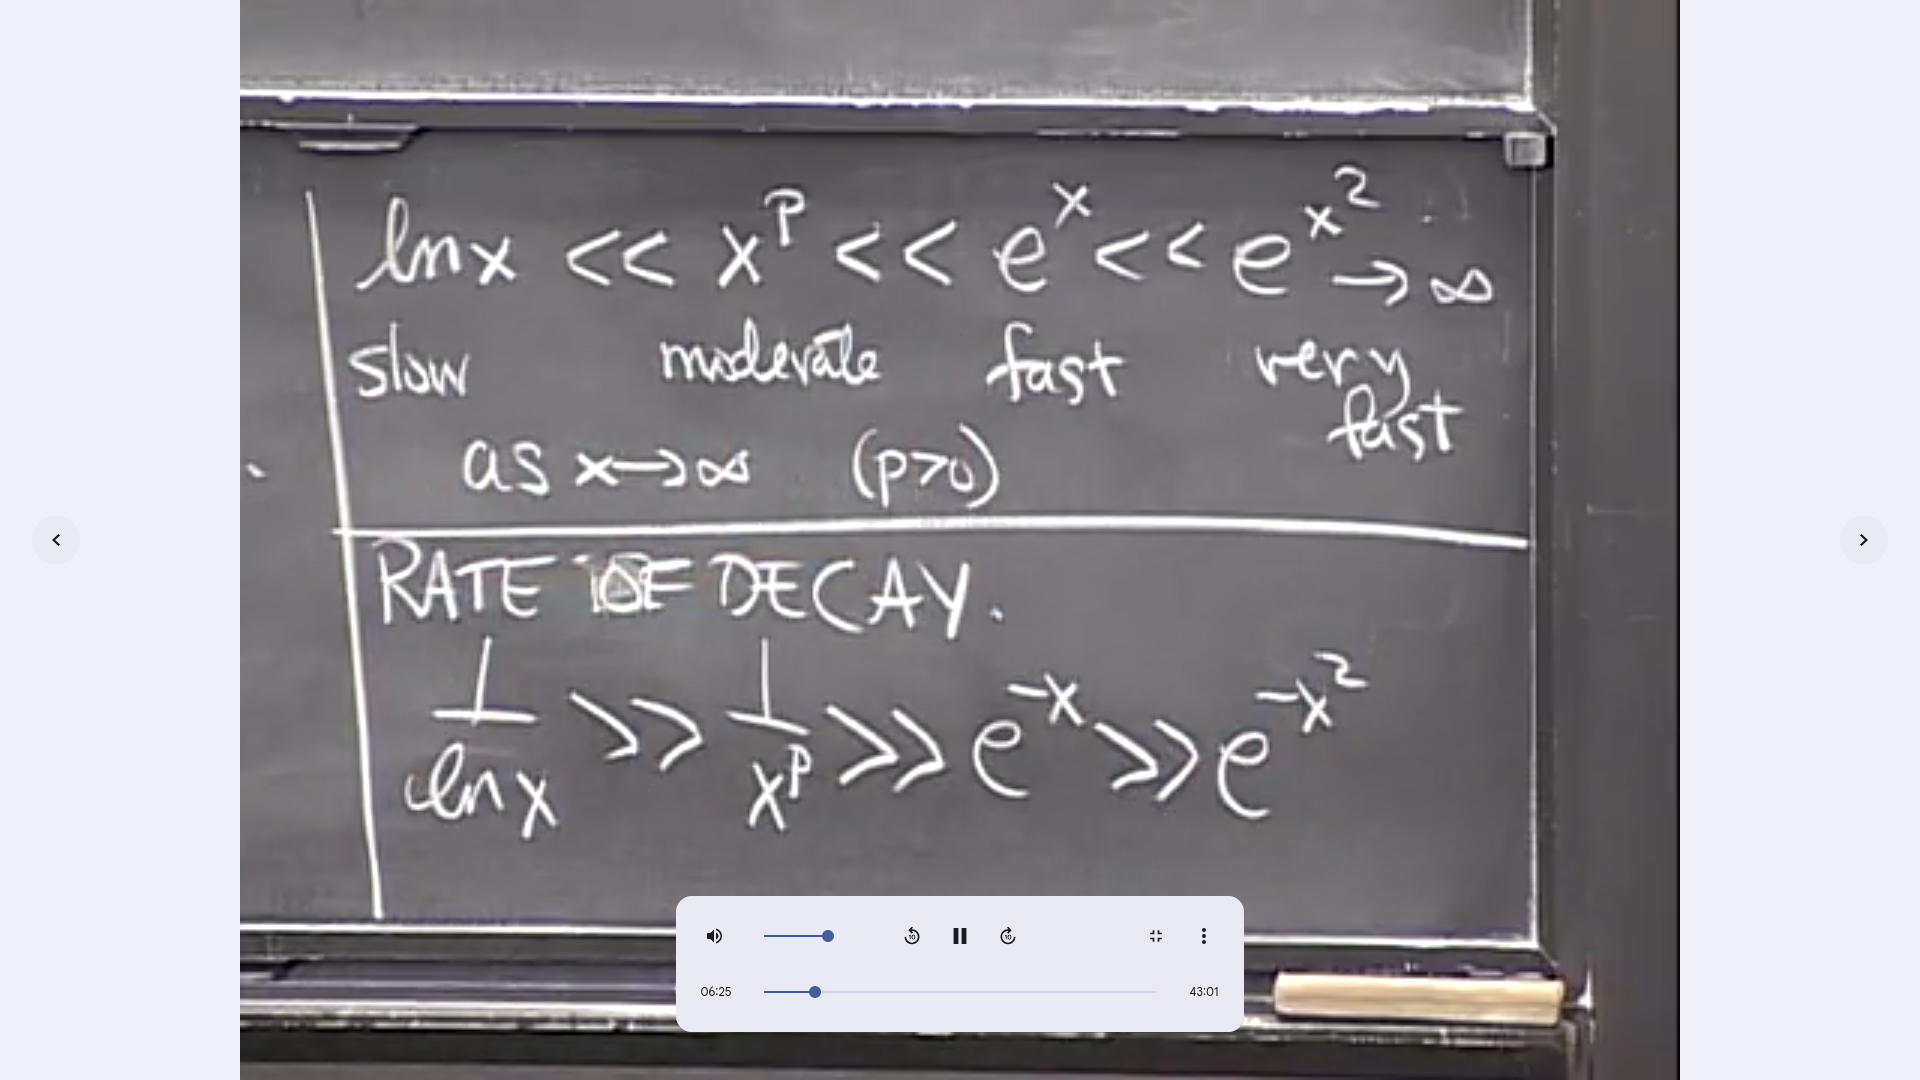 ln x << x^p << e^x << e^x^2 → ∞
slow moderate fast very fast
as x→∞ (p>0)
RATE OF DECAY.
1/ln x >> 1/x^p >> e^-x >> e^-x^2
10 10
06:25 43:01